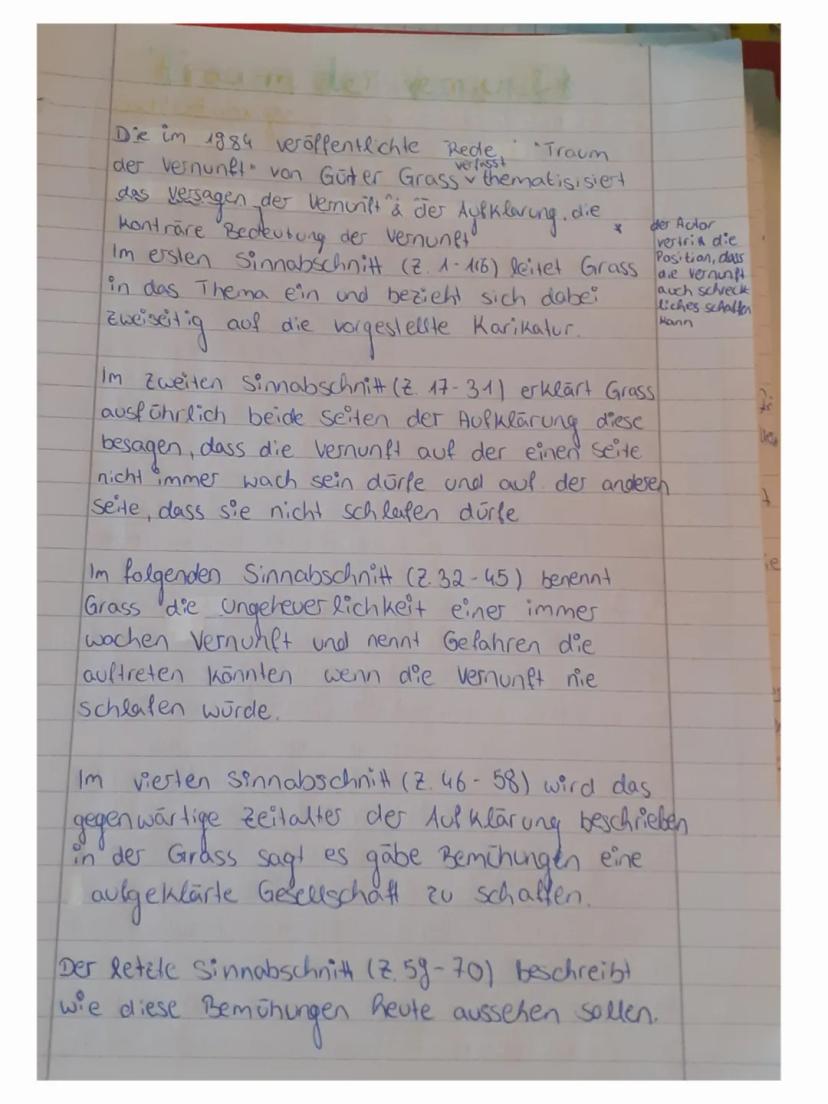 Traum der Vernunft
Die im 1984 veröffentlichte Rede "Traum
der Vernunft" von Güter Grass verfasst thematisisiert
das Versagen der Vernunft & der Aufklärung, die
konträre Bedeutung der Vernunft *
Im ersten Sinnabschnitt (Z. 1-16) leitet Grass
in das Thema ein und bezieht sich dabei
zweiseitig auf die vorgestellte Karikatur.
* der Autor
vertritt die
Position, dass
die Vernunft
auch schreck
liches schaffen
kann
Im zweiten Sinnabschnitt (Z. 17-31) erklärt Grass
ausführlich beide Seiten der Aufklärung diese
besagen, dass die Vernunft auf der einen Seite
nicht immer wach sein dürfe und auf der anderen
Seite, dass sie nicht schlafen dürfe
Im folgenden Sinnabschnitt (Z. 32-45) benennt
Grass die Ungeheuerlichkeit einer immer
wachen Vernunft und nennt Gefahren die
auftreten könnten wenn die Vernunft nie
schlafen würde.
Im vierten Sinnabschnitt (Z. 46-58) wird das
gegenwärtige Zeitalter der Aufklärung beschrieben
in der Grass sagt es gäbe Bemühungen eine
aufgeklärte Gesellschaft zu schaffen.
Der letzte Sinnabschnitt (Z. 59-70) beschreibt
wie diese Bemühungen heute aussehen sollen.